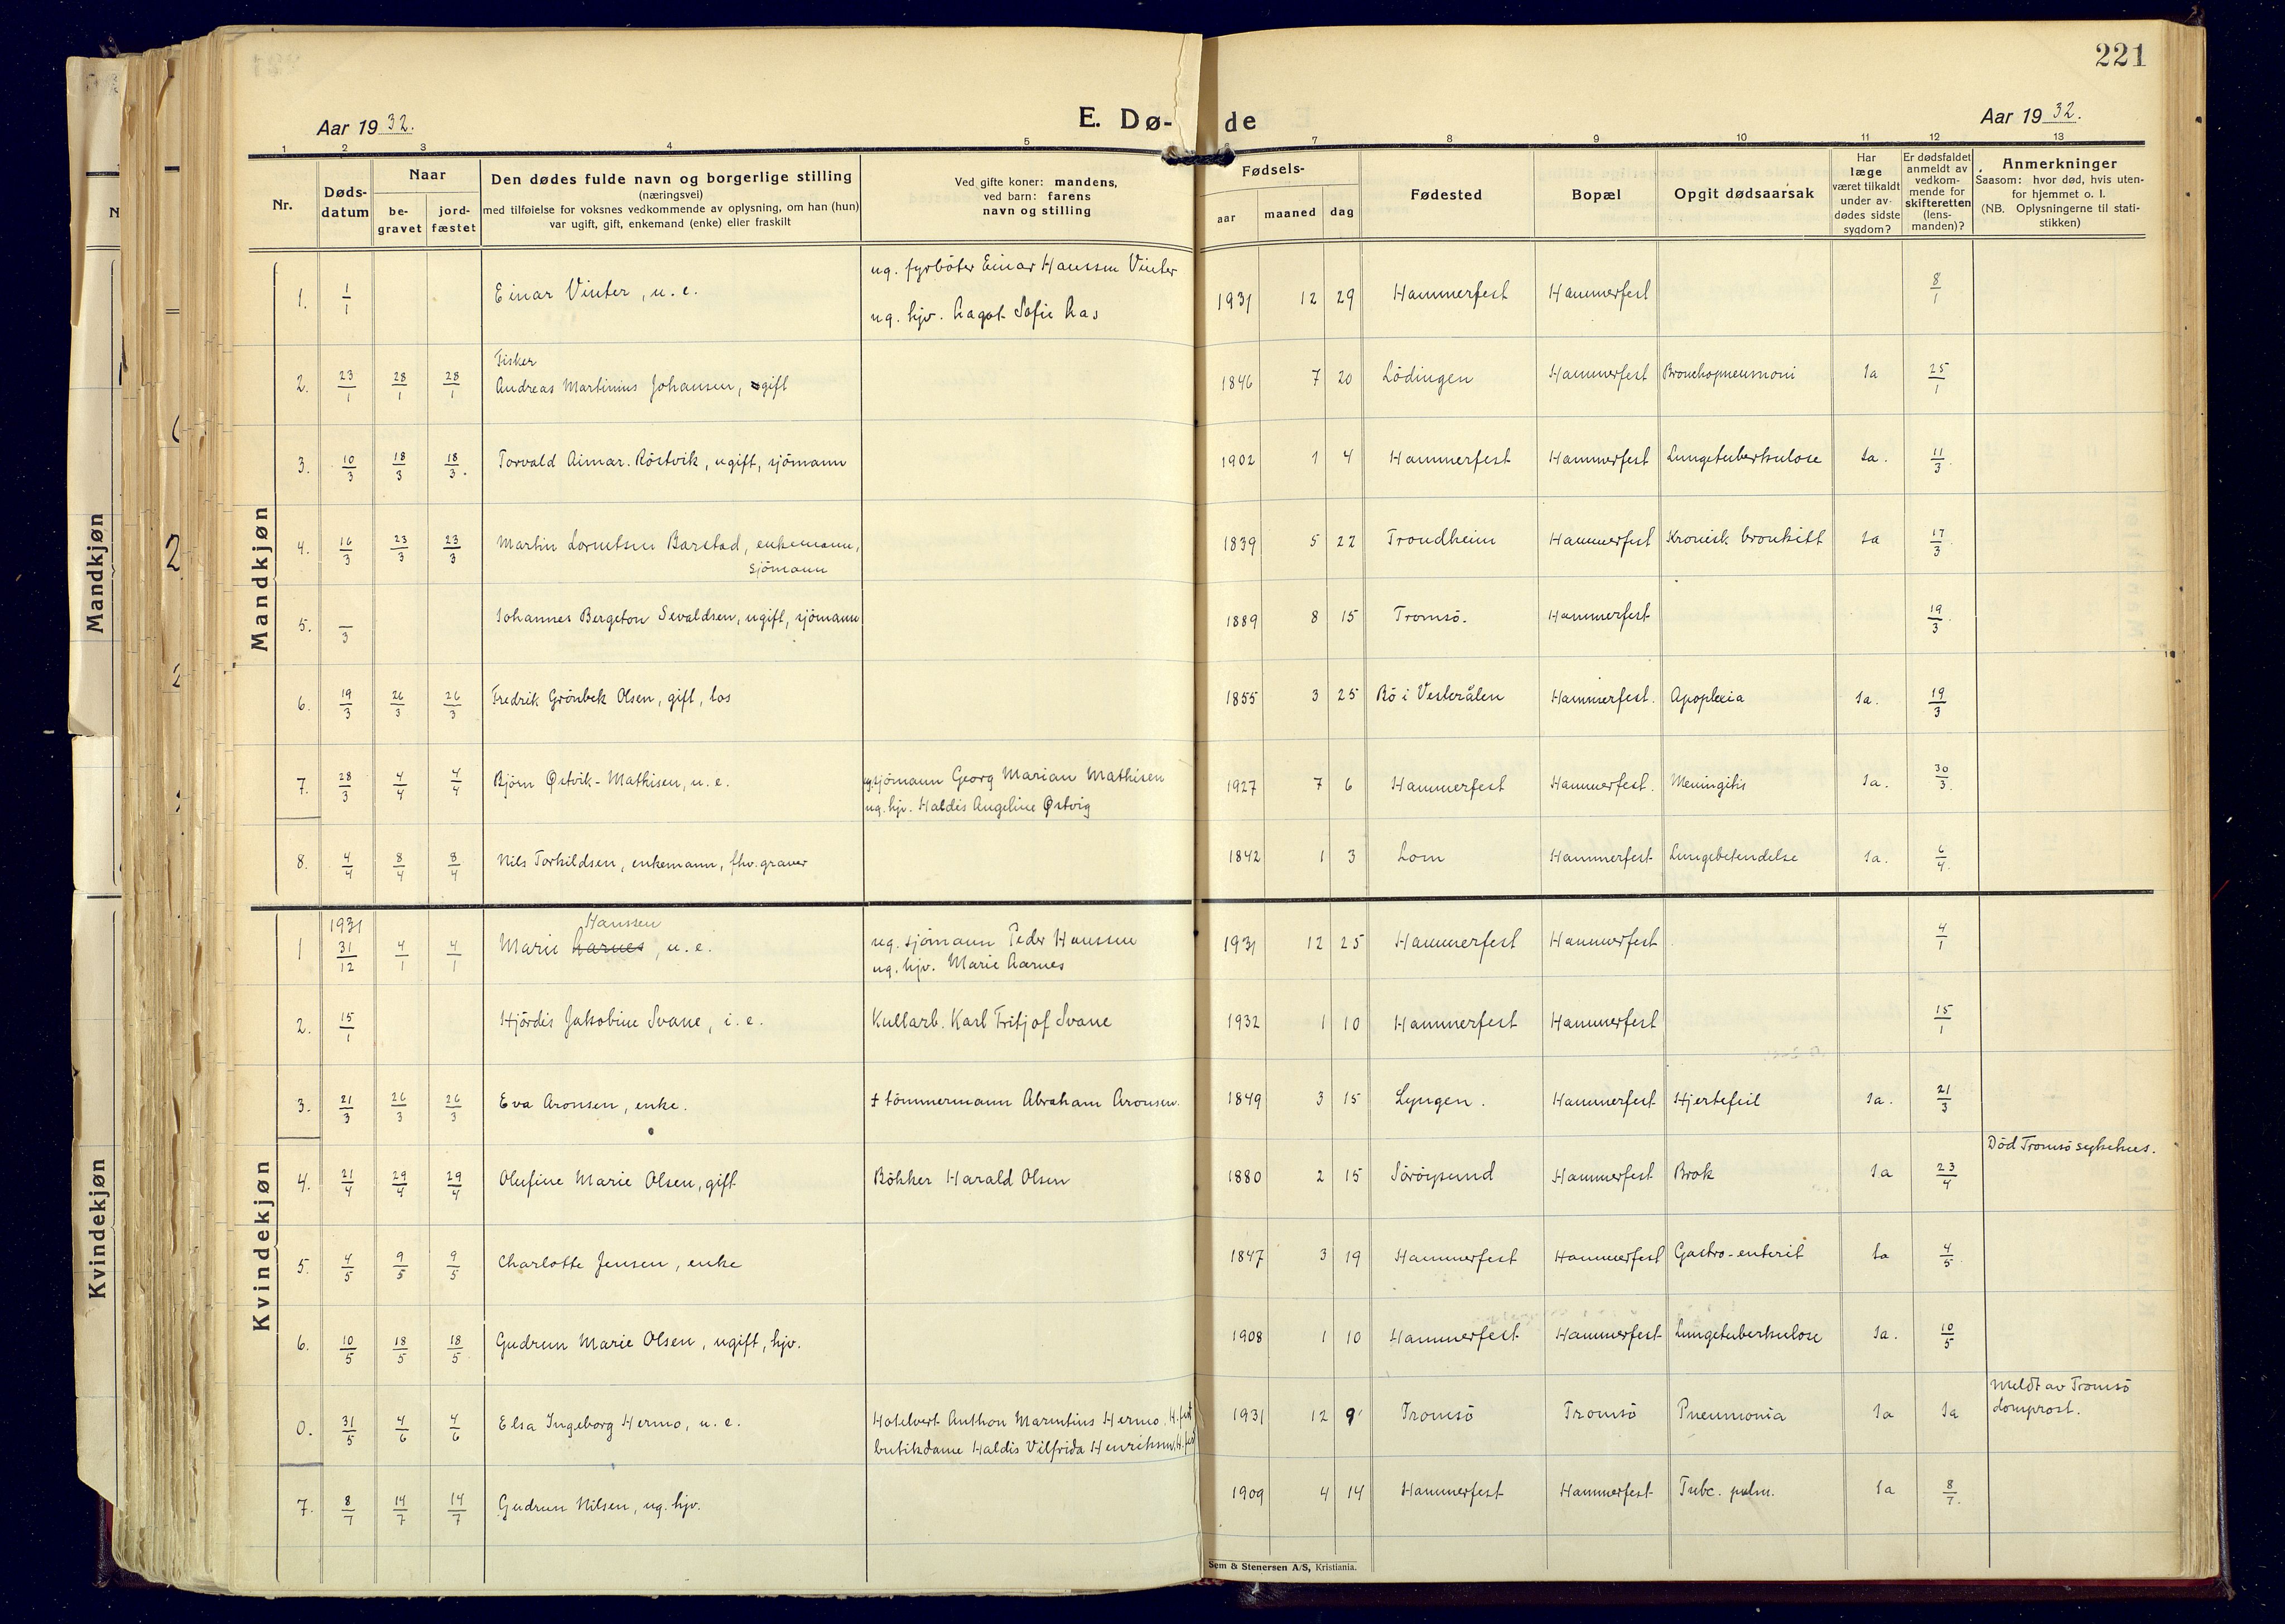 221
Aar 1932.
E. Dø-
de
Aar 1932.
1 2 3 4 5 6 7 8 9 10 11 12 13
Nr.
Døds-
datum
Naar
be-
gravet
jord-
fæstet
Den dødes fulde navn og borgerlige stilling
(næringsvei)
med tilføielse for voksnes vedkommende av oplysning, om han (hun)
var ugift, gift, enkemand (enke) eller fraskilt
Ved gifte koner: mandens,
ved barn: farens
navn og stilling
Fødsels-
aar maaned dag
Fødested
Bopæl
Opgit dødsaarsak
Har
læge
været tilkaldt
under av-
dødes sidste
sygdom?
Er dødsfaldet
anmeldt av
vedkom-
mende for
skifteretten
(lens-
manden)?
Anmerkninger
Saasom: hvor død, hvis uten-
for hjemmet o. l.
(NB. Oplysningerne til stati-
stikken)
Mandkjøn
Mandkjøn
ug. fyrböter Einar Hanssen Vinter
1. 1/1 Einar Vinter, u. e. 1931 12 29 Hammerfest Hammerfest 8/1
ug. hjv. Aagot Sofie Aas
Fisker
2. 23/1 28/1 28/1 Andreas Martinius Johansen, gift 1846 7 20 Lödingen Hammerfest Bronchopneumoni Ja 25/1
3. 10/3 18/3 18/3. Torvald Aimar. Röstvik, ugift, sjömann 1902 1 4 Hammerfest Hammerfest Lungetuberkulose Ja. 11/3.
4. 16/3 23/3 23/3 Martin Lorentsen Barstad, enkemann, 1839 5 22 Trondheim Hammerfest Kronisk bronkitt Ja 17/3.
sjömann
5. /3 Johannes Bergeton Sevaldsen, ugift, sjömann 1889 8 15 Tromsö. Hammerfest 19/3.
6. 19/3 26/3 26/3 Fredrik Grönbek Olsen, gift, los 1855 3 25 Bö i Vesterålen Hammerfest. Apoplexia Ja. 19/3
7. 28/3 4/4 4/4 Björn Østvik-Mathisen, u. e. ug. sjömann Georg Marian Mathisen 1927 7 6 Hammerfest Hammerfest. Meningitis Ja. 30/3.
ug. hjv. Haldis Angeline Østvig
8. 4/4 8/4 8/4 Nils Torkildsen, enkemann, fhv. graver 1842 1 3 Lom Hammerfest Lungebetendelse Ja. 6/4.
Kvindekjøn
Kvindekjøn
1931 Hanssen
1 31/12 4/1 4/1 Marie Aarnes, u. e. ug. sjömann Peder Hanssen 1931 12 25 Hammerfest Hammerfest 4/1
ug. hjv. Marie Aarnes
2. 15/1 Hjördis Jakobine Svane, i. e. Kullarb. Karl Fritjof Svane 1932 1 10 Hammerfest Hammerfest 15/1
3. 21/3 26/3 26/3 Eva Aronsen, enke. † tömmermann Abraham Aronsen. 1849 3 15 Lyngen. Hammerfest Hjertefeil Ja. 21/3
Död Tromsö sykehus.
4. 21/4 29/4 29/4 Olufine Marie Olsen, gift Bökker Harald Olsen 1880 2 15 Söröysund Hammerfest Brok Ja 23/4
5. 4/5 9/5 9/5 Charlotte Jensen, enke 1847 3 19 Hammerfest Hammerfest Gastro-enterit Ja 4/5.
6. 10/5 18/5 18/5 Gudrun Marie Olsen, ugift, hjv. 1908 1 10 Hammerfest Hammerfest Lungetuberkulose Ja. 10/5
Meldt av Tromsö
0. 31/5 4/6 4/6 Elsa Ingeborg Hermo, u. e. Hotelvert Anthon Marentius Hermo. H.fest 1931 12 9 Tromsö Tromsö Pneumonia Ja Ja domprost.
butikdame Haldis Vilfrida Henriksen, H.fest
7. 8/7 14/7 14/7 Gudrun Nilsen, ug. hjv. 1909 4 14 Hammerfest Hammerfest Tubc. pulm. Ja 8/7.
Sem & Stenersen A/S, Kristiania.